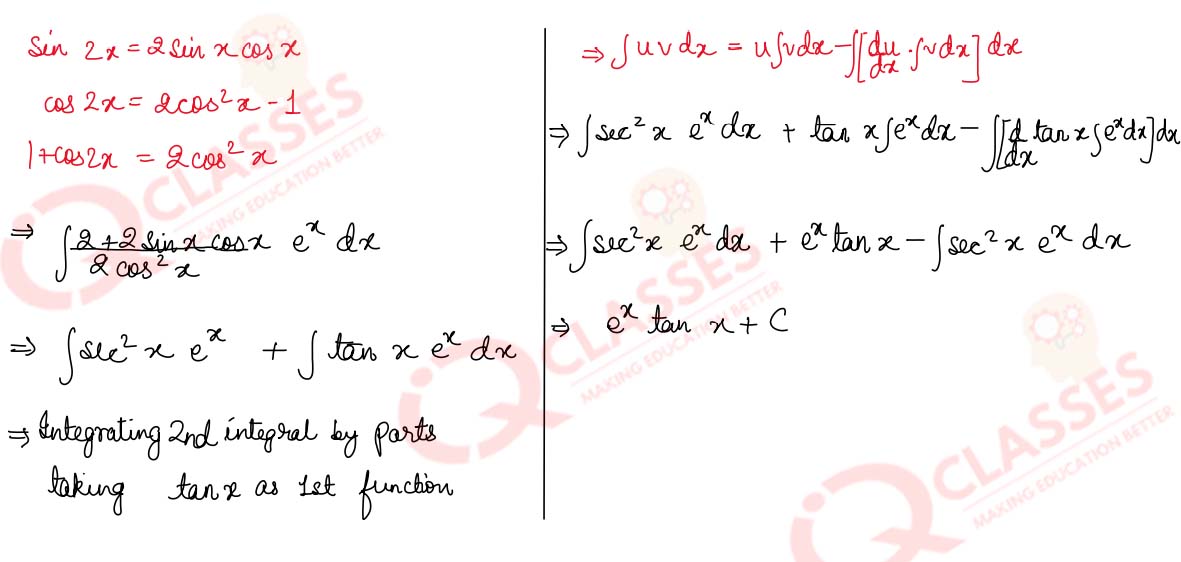 sin 2x = 2 sin x cos x
cos 2x = 2cos² x - 1
1+cos2x = 2cos² x
⇒ ∫ (2+2 sin x cos x)/(2 cos² x) eˣ dx
⇒ ∫ sec² x eˣ + ∫ tan x eˣ dx
⇒ Integrating 2nd integral by parts
taking tan x as 1st function
⇒ ∫ u v dx = u∫vdx - ∫[du/dx . ∫vdx] dx
⇒ ∫ sec² x eˣ dx + tan x ∫eˣ dx - ∫[d/dx tan x ∫eˣdx]dx
⇒ ∫ sec² x eˣ dx + eˣ tan x - ∫ sec² x eˣ dx
⇒ eˣ tan x + C
IQ CLASSES
MAKING EDUCATION BETTER
IQ CLASSES
MAKING EDUCATION BETTER
IQ CLASSES
MAKING EDUCATION BETTER